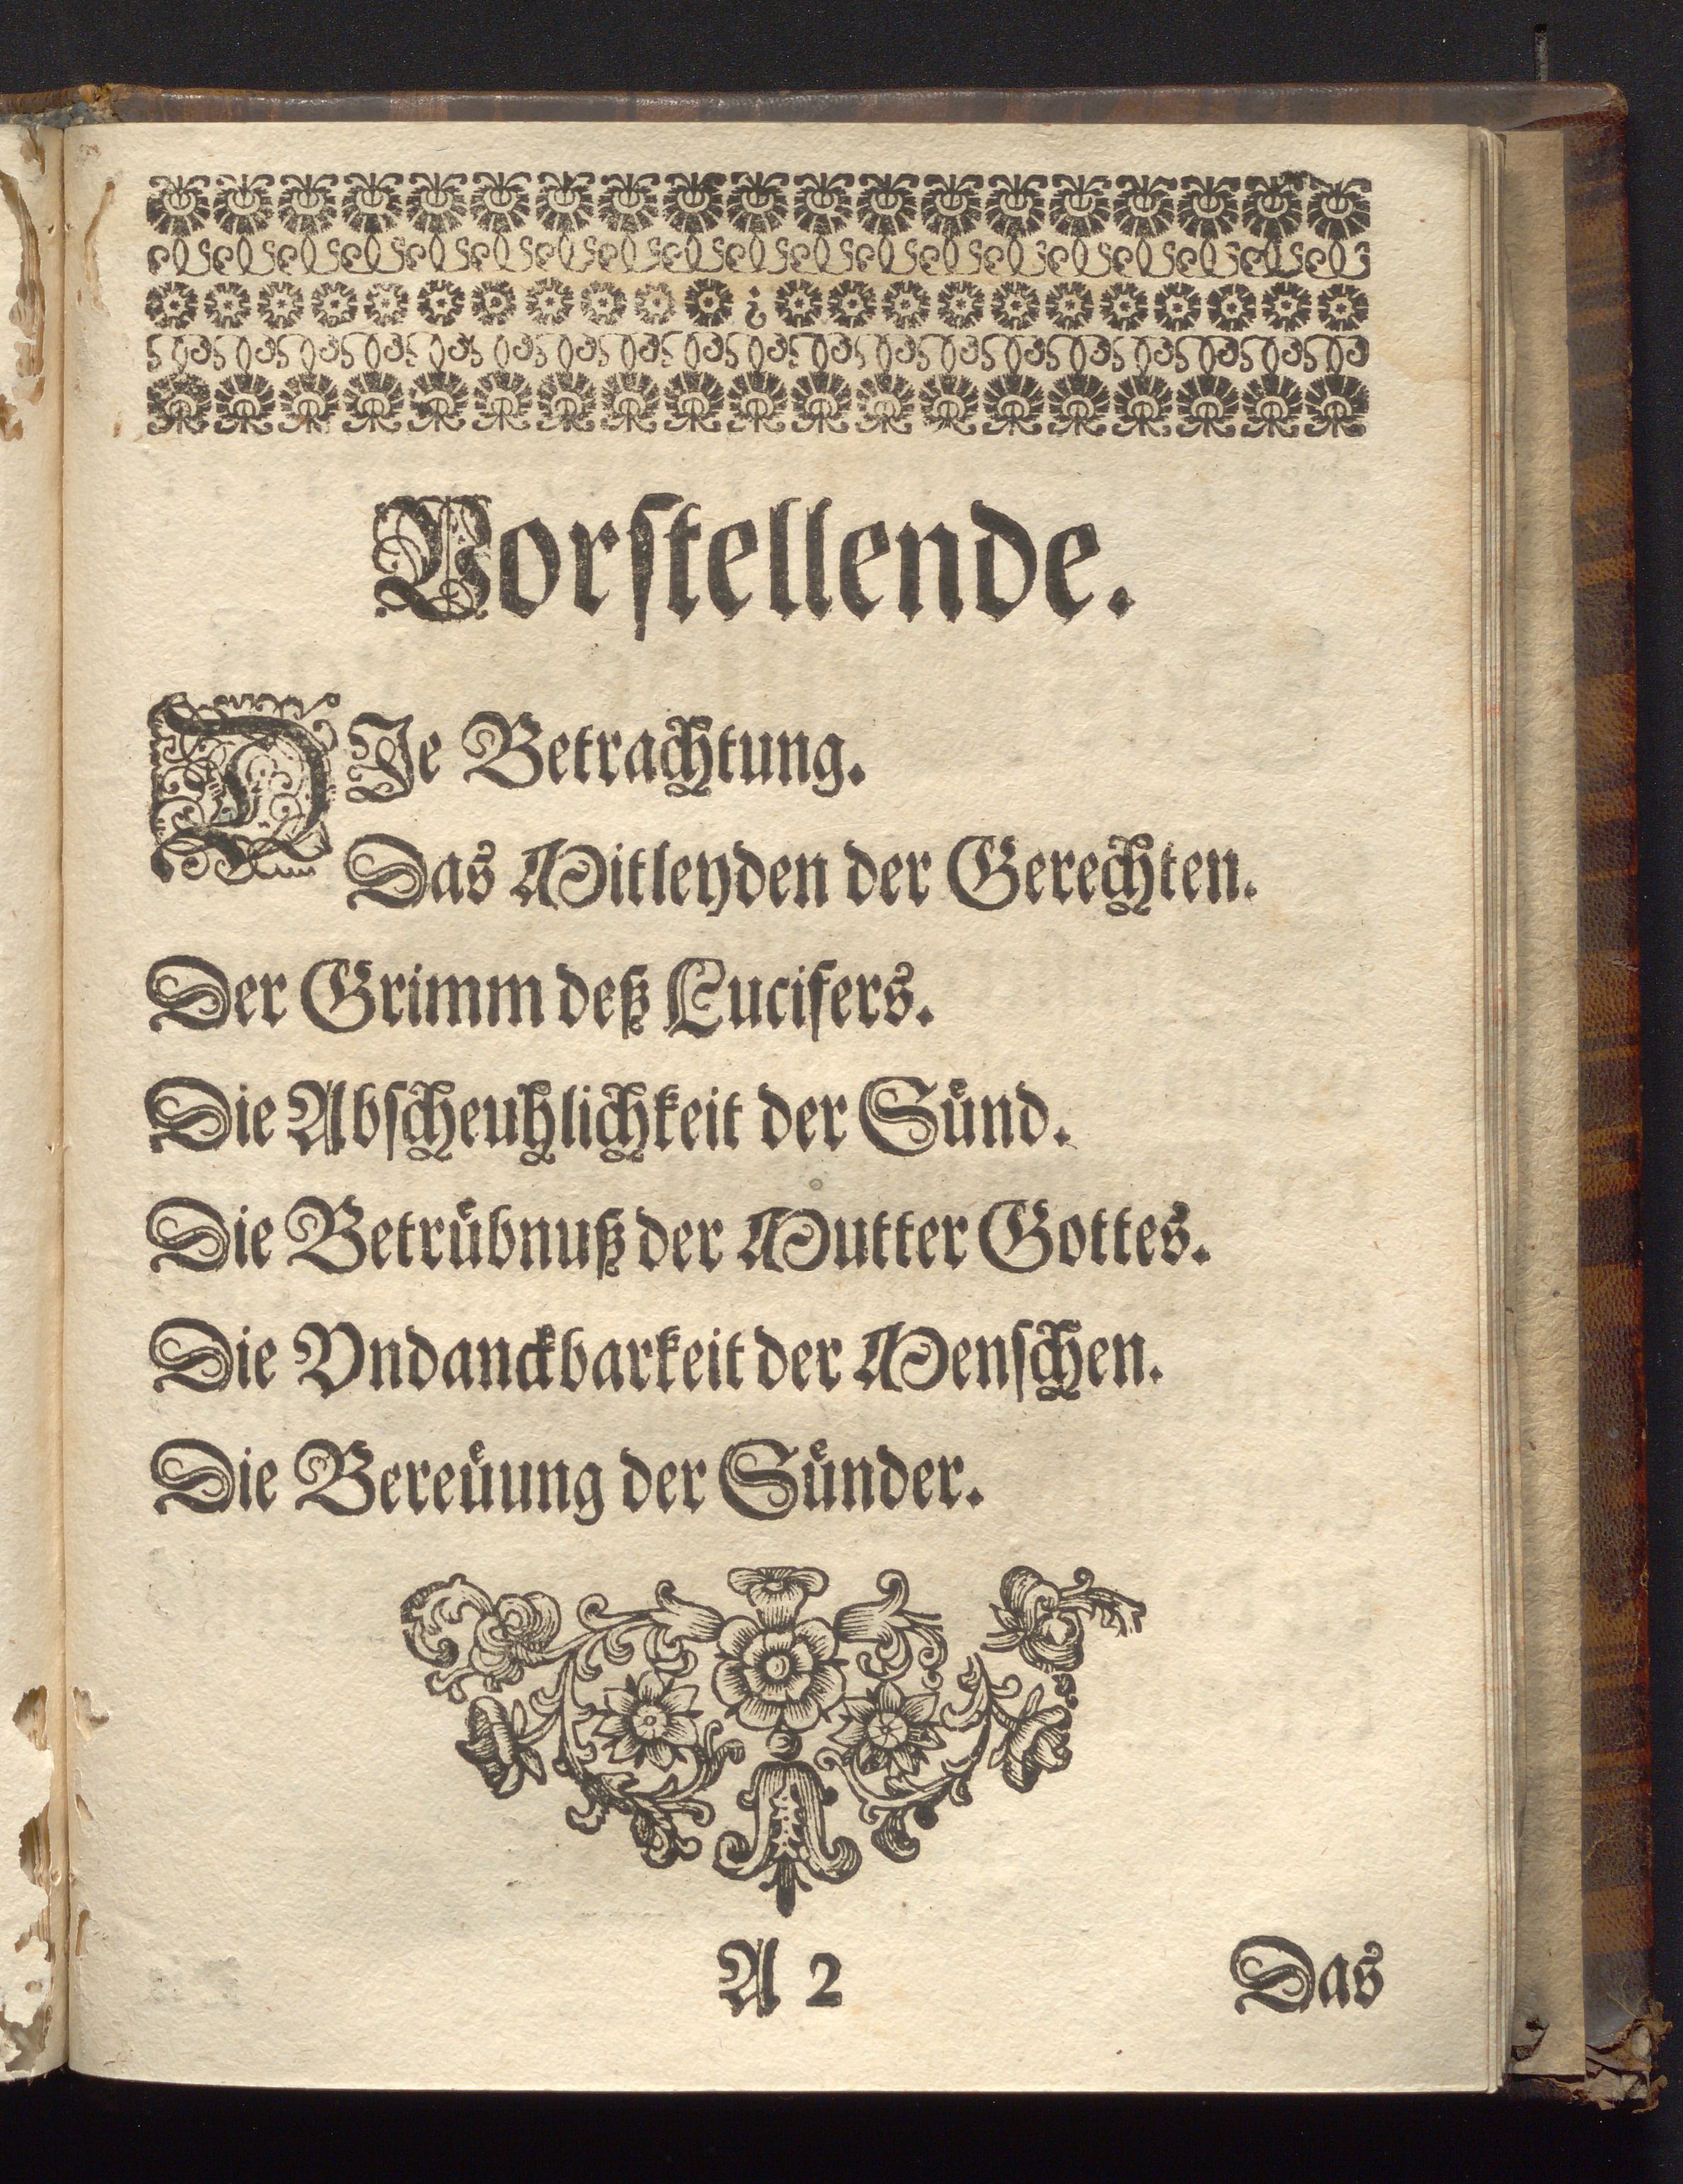 Vorſtellende.
DIe Betrachtung.
Das Mitleyden der Gerechten.
Der Grimm deß Lucifers.
Die Abſcheuhlichkeit der Sünd.
Die Betrübnuß der Mutter Gottes.
Die Vndanckbarkeit der Menſchen.
Die Bereüung der Sünder.
A 2
Das